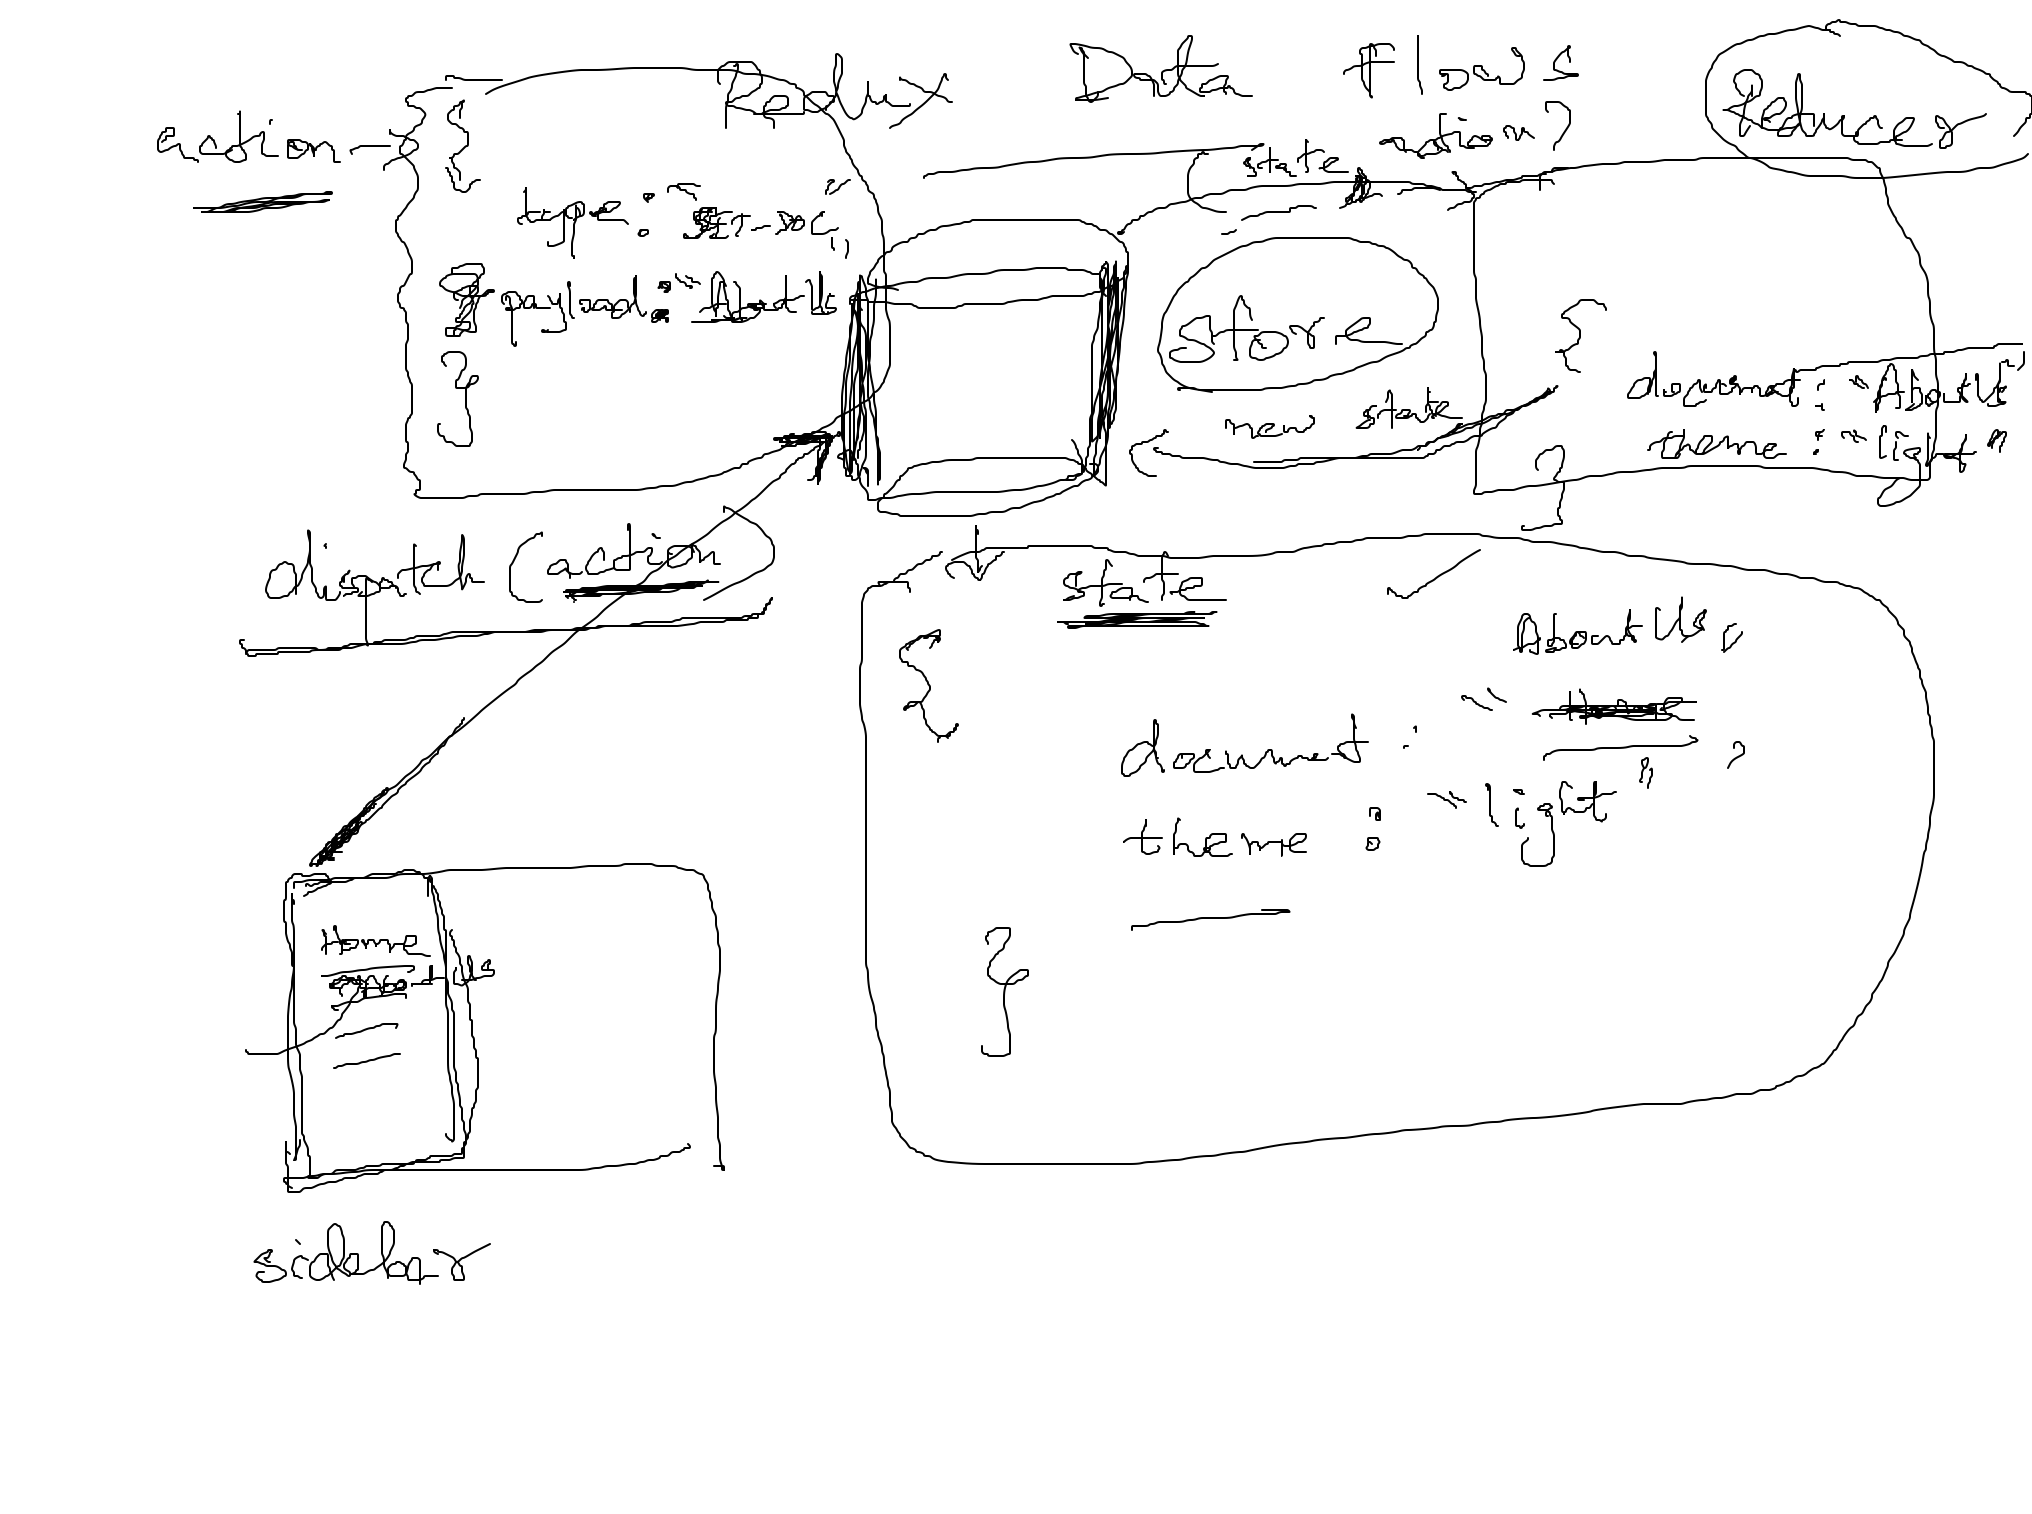 Redux Data Flows
Reducer
action
{
type: "SET-DOC",
payload: "AboutUs
}
(state, action)
store
new state
{
document: "AboutUs"
theme: "light"
}
dispatch (action)
state
{
AboutUs,
document: " Home ,
theme: "light"
}
Home
About Us
sidebar